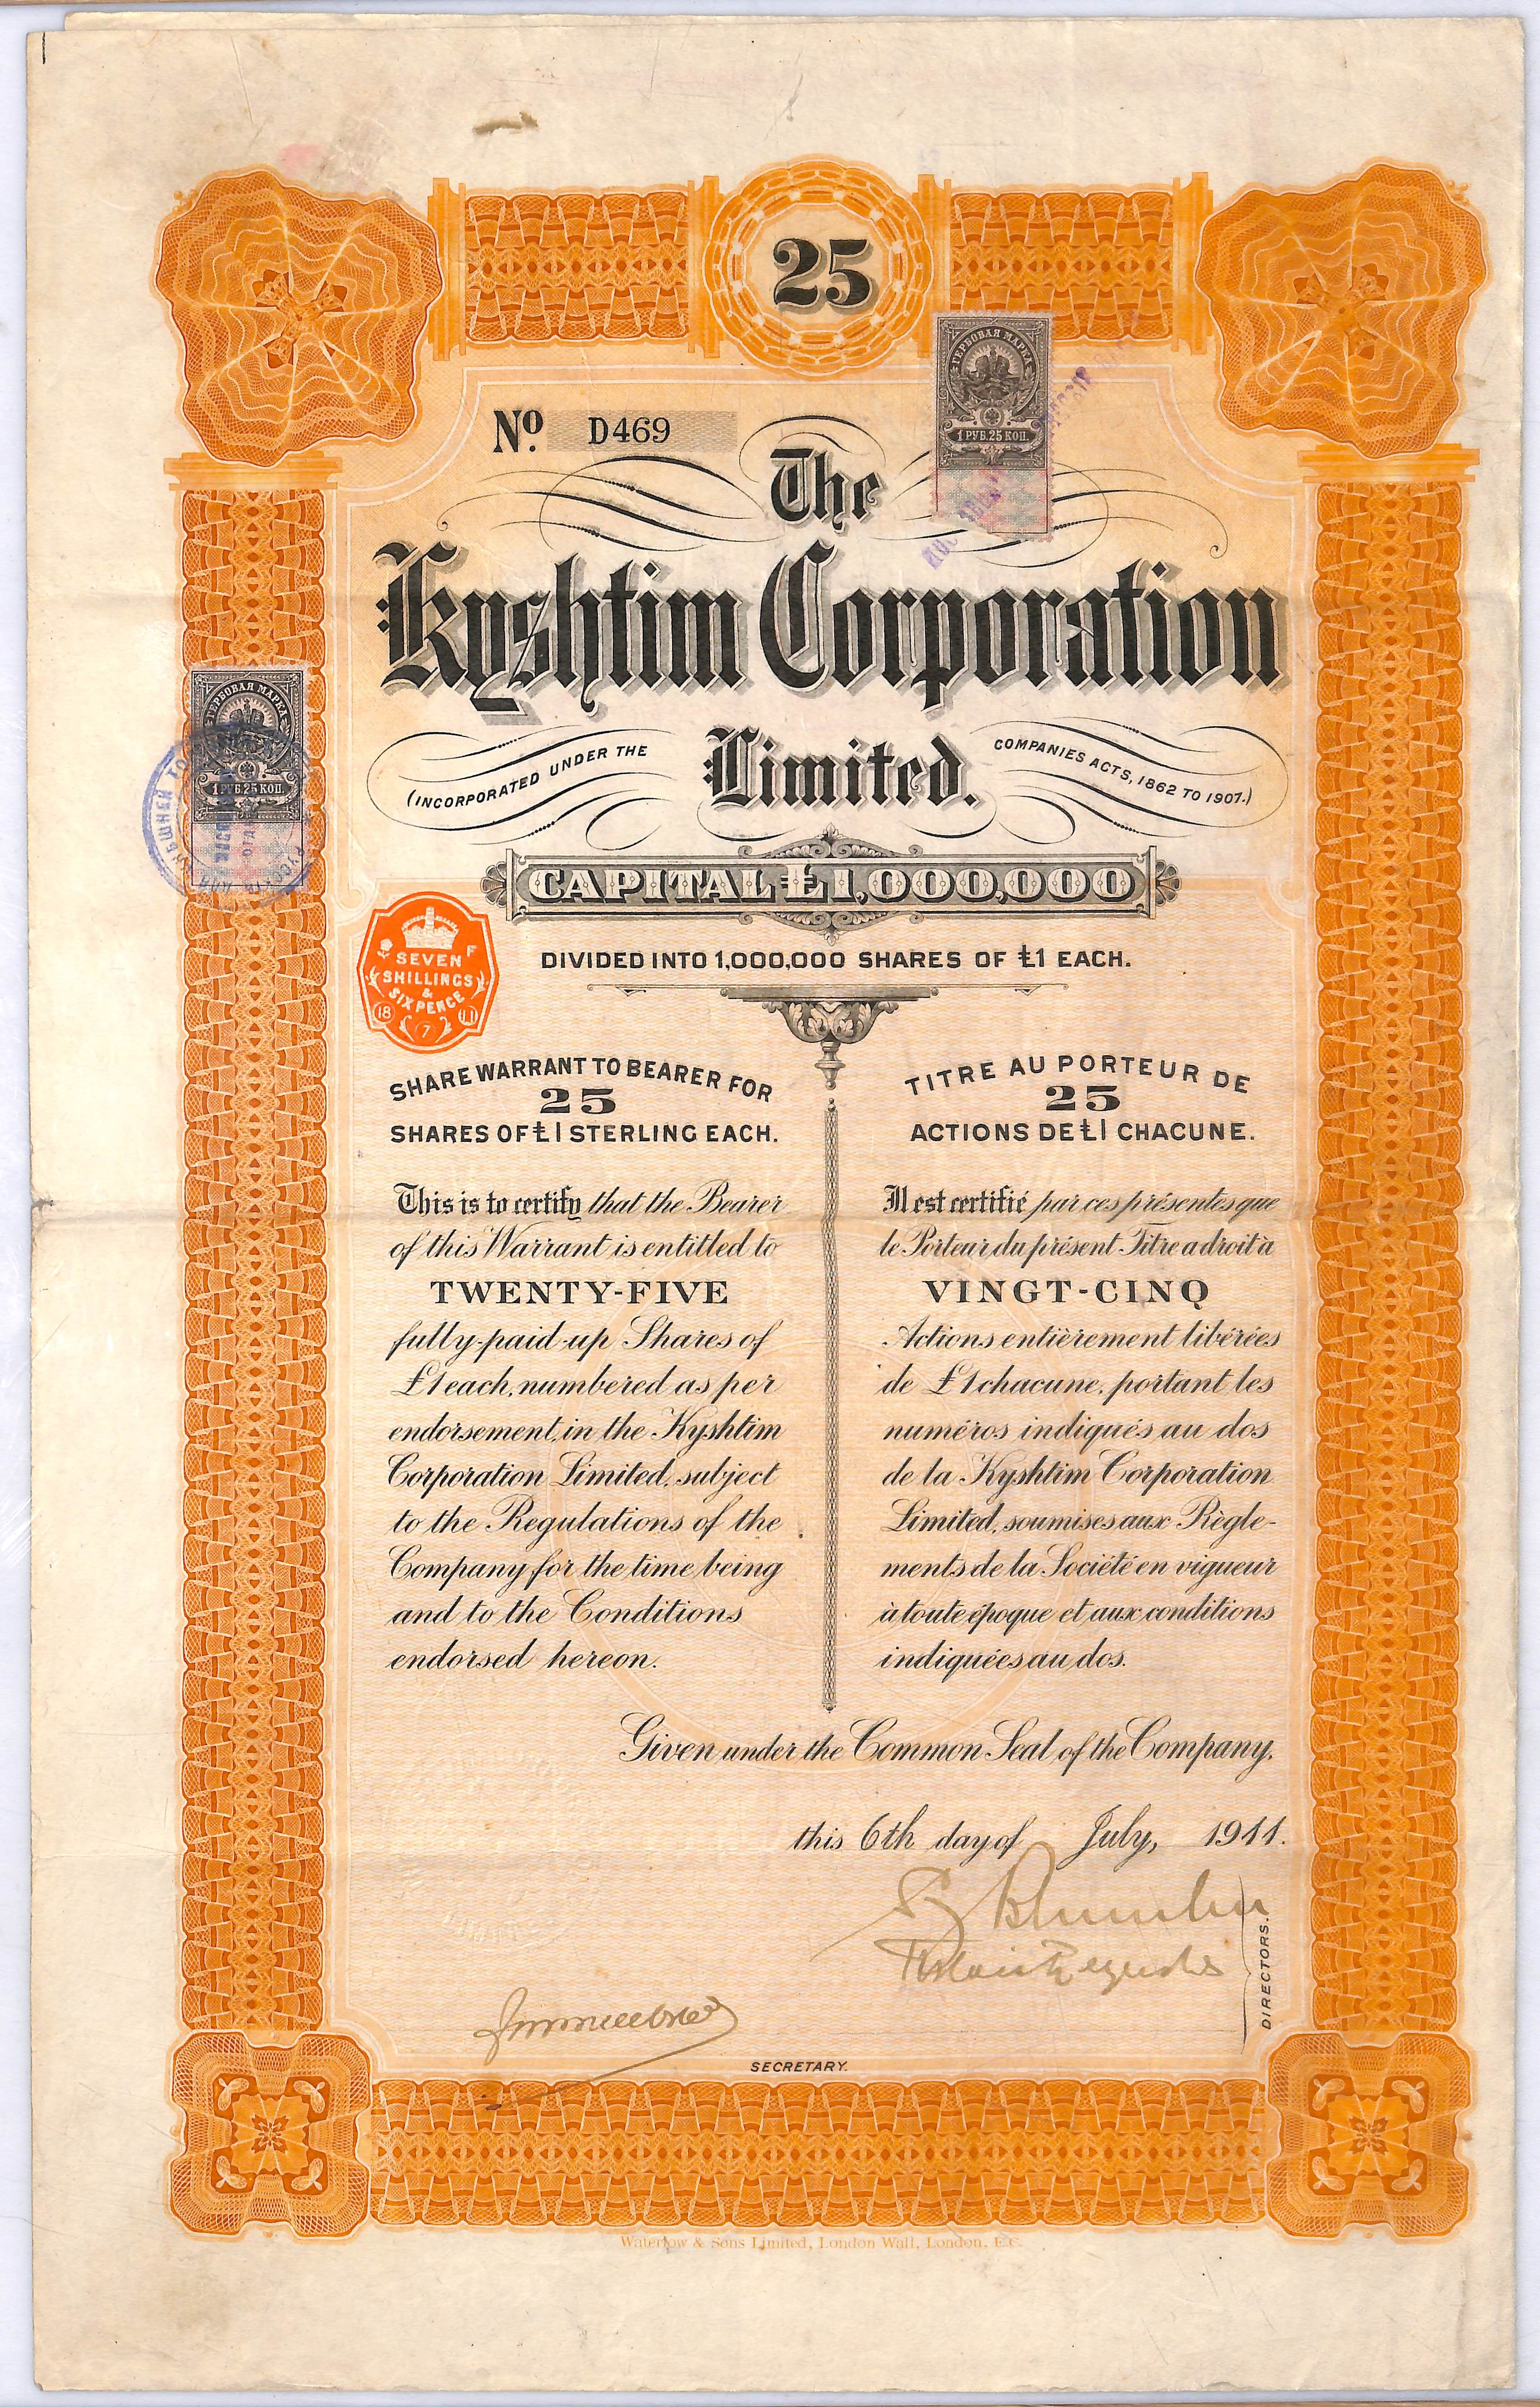 25
ГЕРБОВАЯ МАРКА
1 РУБ. 25 КОП.
Nº. D469
The
Kyshtim Corporation
Limited.
(INCORPORATED UNDER THE COMPANIES ACTS, 1862 TO 1907.)
ГЕРБОВАЯ МАРКА
1 РУБ. 25 КОП.
CAPITAL £1,000,000
DIVIDED INTO 1,000,000 SHARES OF £1 EACH.
F
SEVEN
SHILLINGS
&
SIXPENCE
18 11
7
SHARE WARRANT TO BEARER FOR
25
SHARES OF £1 STERLING EACH.
This is to certify that the Bearer
of this Warrant is entitled to
TWENTY-FIVE
fully-paid-up Shares of
£1 each, numbered as per
endorsement, in the Kyshtim
Corporation Limited, subject
to the Regulations of the
Company for the time being
and to the Conditions
endorsed hereon.
TITRE AU PORTEUR DE
25
ACTIONS DE £1 CHACUNE.
Il est certifié par ces présentes que
le Porteur du présent Titre a droit à
VINGT-CINQ
Actions entièrement libérées
de £1 chacune, portant les
numéros indiqués au dos
de la Kyshtim Corporation
Limited, soumises aux Règle-
ments de la Société en vigueur
à toute époque et aux conditions
indiquées au dos.
Given under the Common Seal of the Company,
this 6th day of July, 1911.
DIRECTORS.
SECRETARY.
Waterlow & Sons Limited, London Wall, London, E.C.